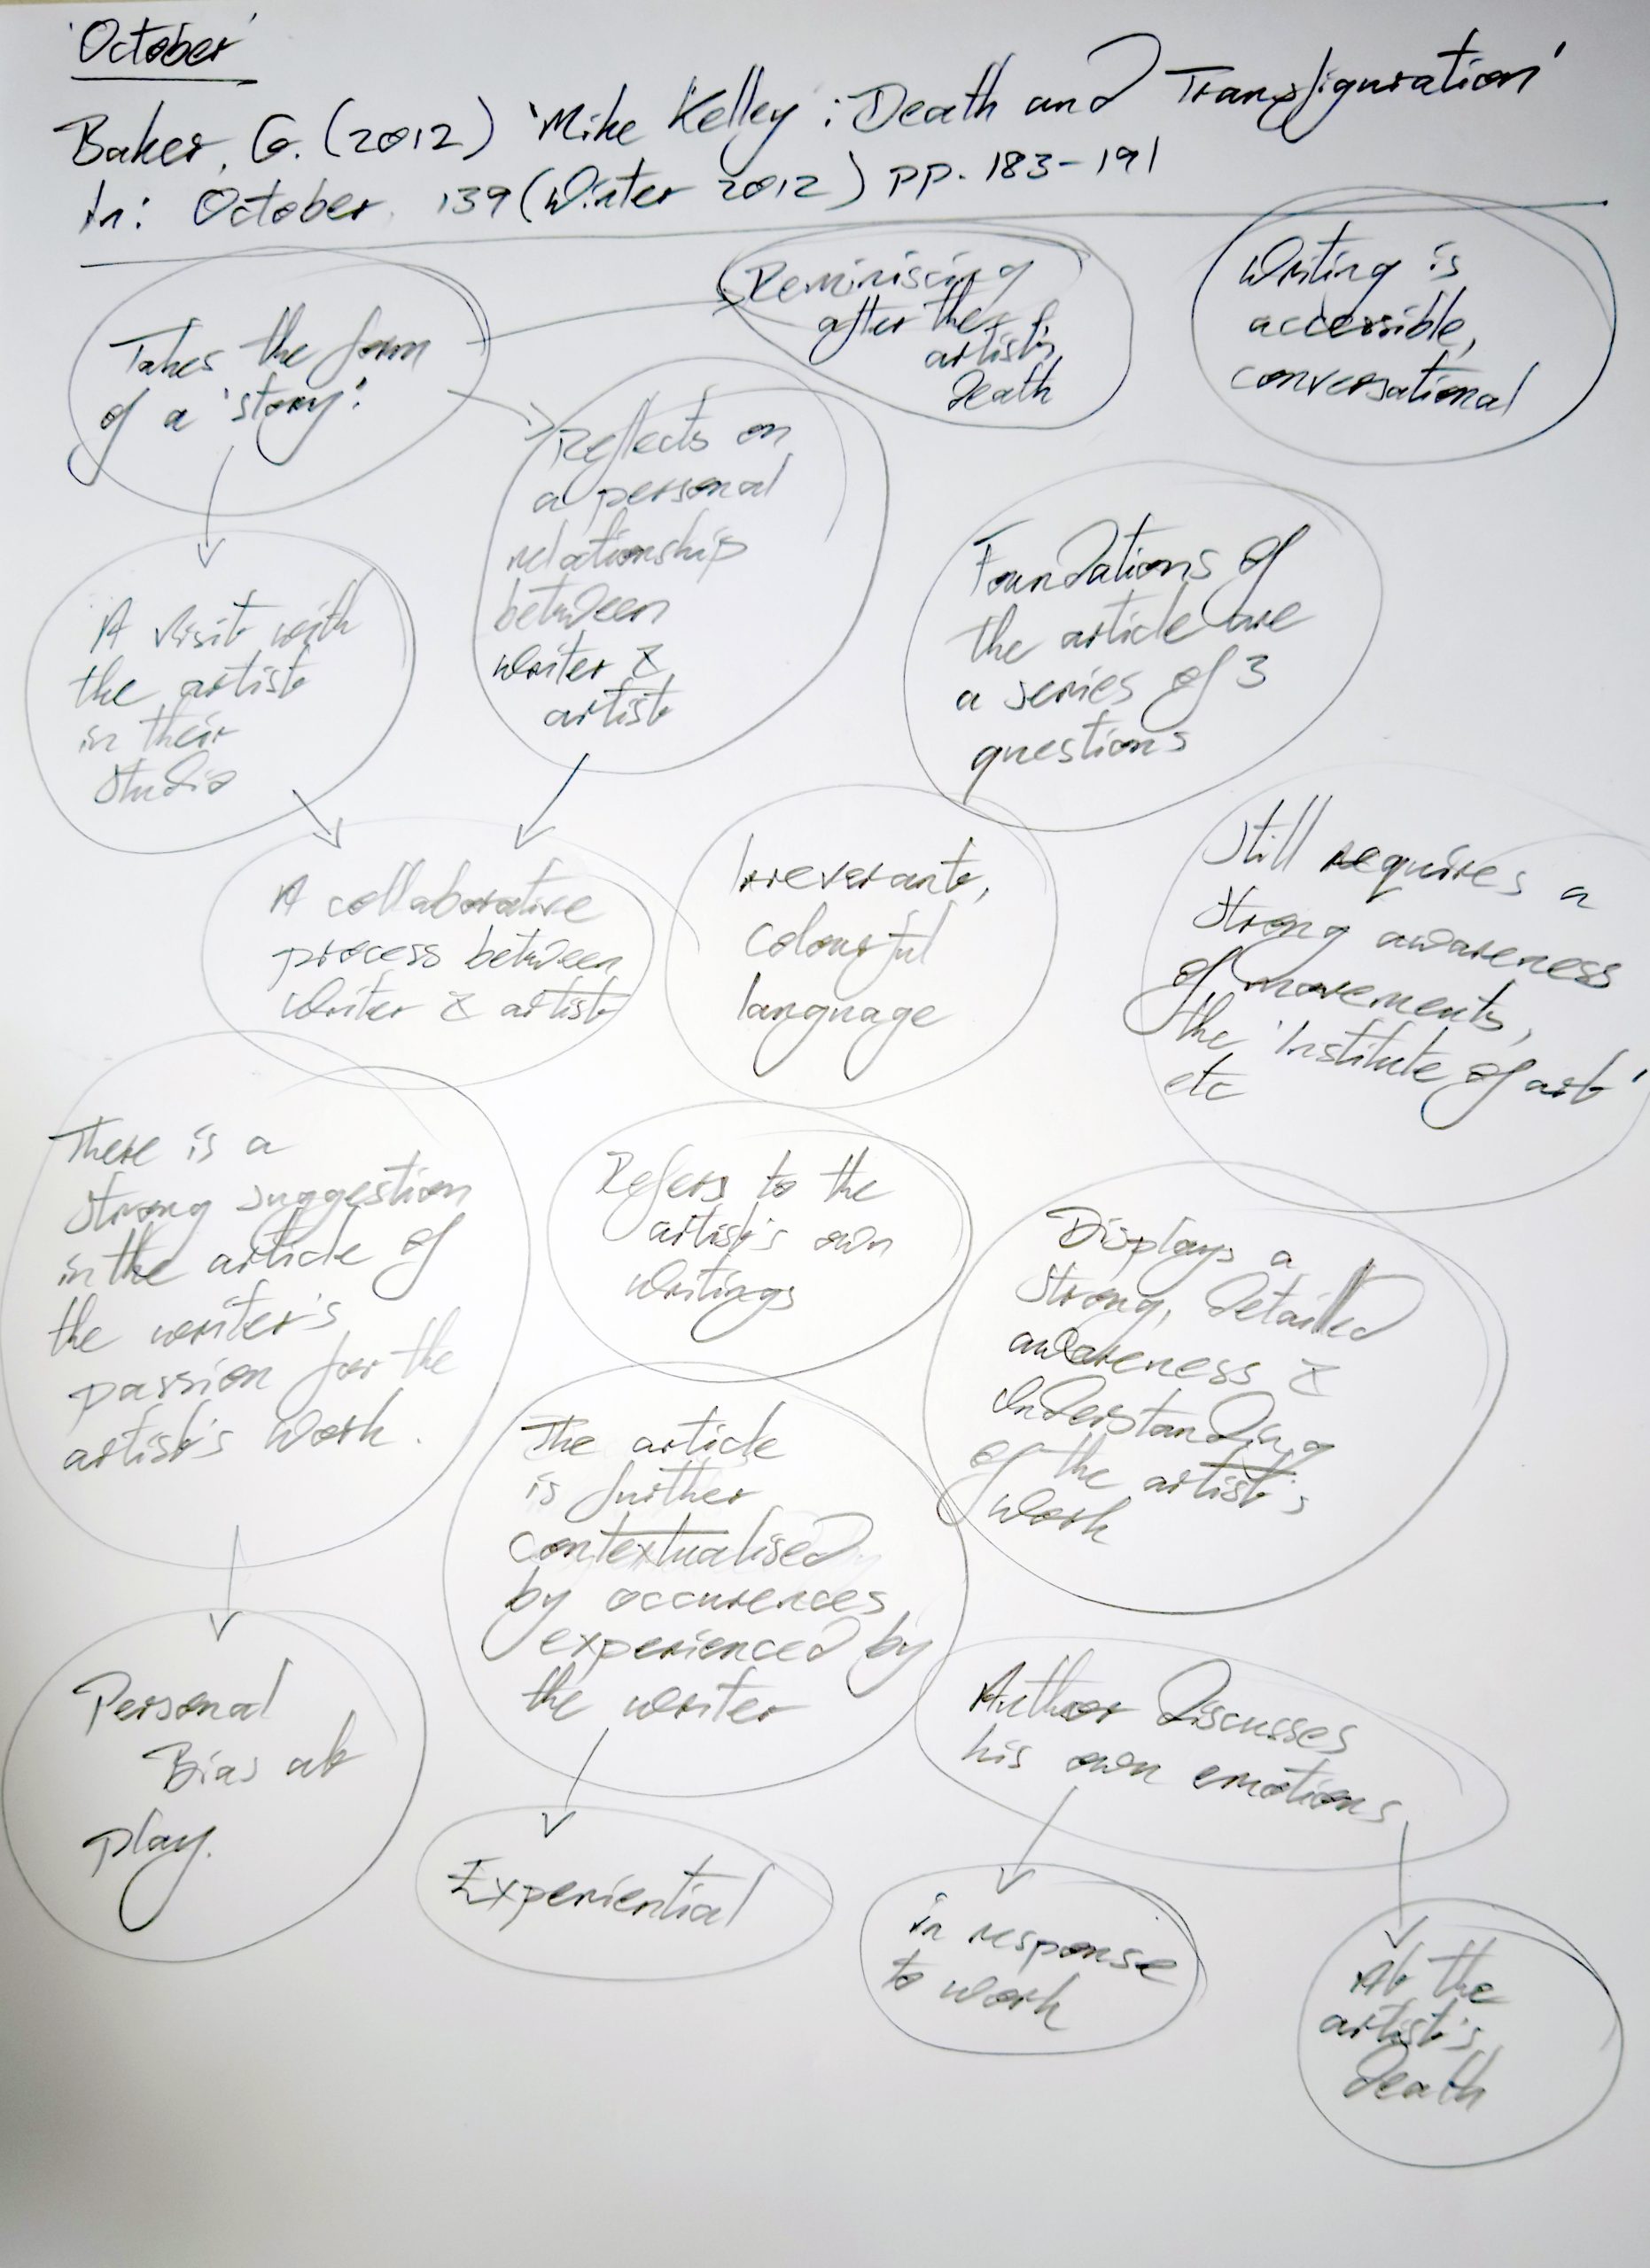 'October'
Baker, G. (2012) 'Mike Kelley: Death and Transfiguration'
In: October. 139 (Winter 2012) pp. 183-191
Takes the form
of a 'story'.
Reminiscing
after the
artist's
death
Writing is
accessible,
conversational
Reflects on
a personal
relationship
between
writer &
artist
A visit with
the artist
in their
studio
Foundations of
the article are
a series of 3
questions
A collaborative
process between
writer & artist
Irreverant,
colourful
language
Still requires a
strong awareness
of movements,
the 'Institute of art'
etc
There is a
strong suggestion
in the article of
the writer's
passion for the
artist's work.
Refers to the
artist's own
writings
Displays a
strong, detailed
awareness &
understanding
of the artist's
work
The article
is further
contextualised
by occurences
experienced by
the writer
Personal
Bias at
play.
Experiential
Author discusses
his own emotions
in response
to work
At the
artist's
death